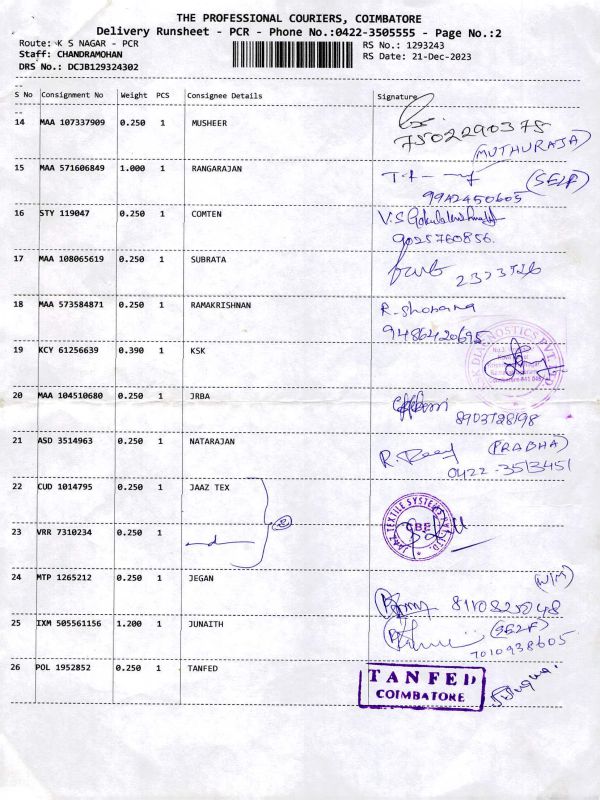 THE PROFESSIONAL COURIERS, COIMBATORE
Delivery Runsheet - PCR - Phone No.:0422-3505555 - Page No.:2
Route: K S NAGAR - PCR
RS No.: 1293243
Staff: CHANDRAMOHAN
RS Date: 21-Dec-2023
DRS No.: DCJB129324302
S No Consignment No Weight PCS Consignee Details Signature
14 MAA 107337909 0.250 1 MUSHEER
7502290375
(MUTHURAJA)
15 MAA 571606849 1.000 1 RANGARAJAN
(SELF)
9942450605
16 STY 119047 0.250 1 COMTEN
9025760856.
17 MAA 108065619 0.250 1 SUBRATA
2323526
18 MAA 573584871 0.250 1 RAMAKRISHNAN
R. Shobana
9486420695
19 KCY 61256639 0.390 1 KSK
DIAGNOSTICS PVT. LTD.
20 MAA 104510680 0.250 1 JRBA
8903728198
21 ASD 3514963 0.250 1 NATARAJAN
(PRABHA)
0422-3513451
22 CUD 1014795 0.250 1 JAAZ TEX
JAAZ TEXTILE SYSTEMS PVT. LTD.
CBE
23 VRR 7310234 0.250 1
24 MTP 1265212 0.250 1 JEGAN
8110825048
25 IXM 505561156 1.200 1 JUNAITH
(SELF)
7010938605
26 POL 1952852 0.250 1 TANFED
TANFED
COIMBATORE